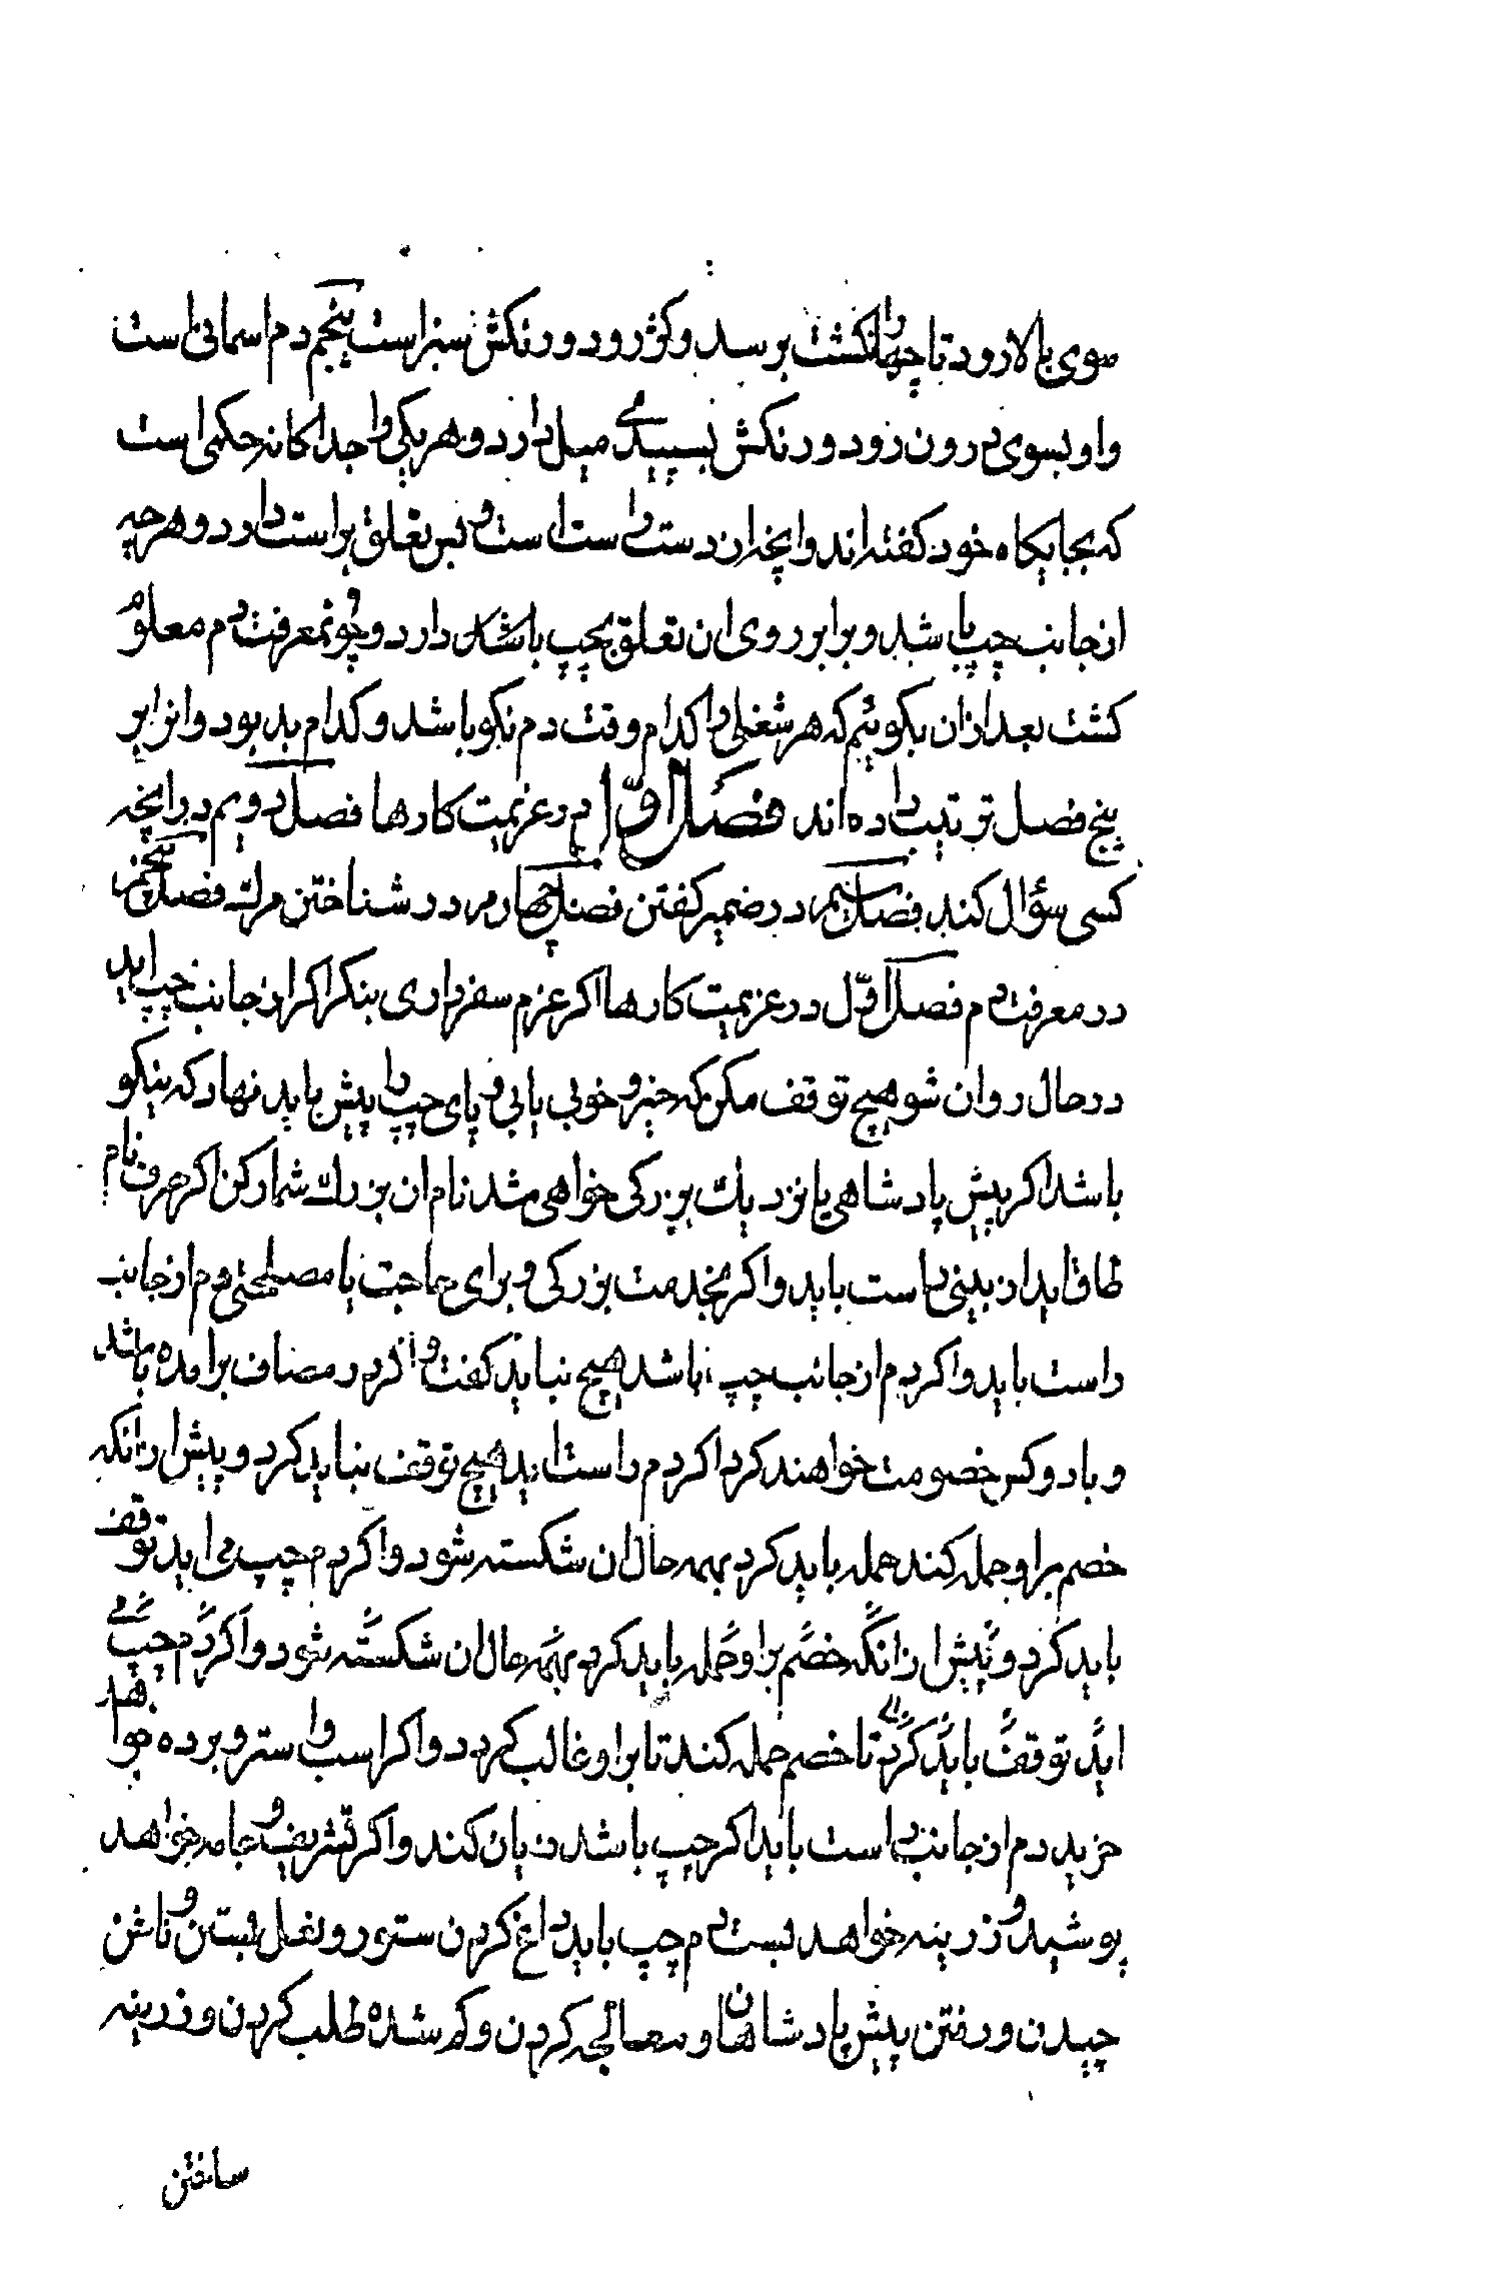 سوی بالا رود تا چهار انکشت برسد و کژ رود و رنکش سبز است پنجم دم اسمانی است
و او بسوی درون رود و رنکش بسپیدی میل دارد و هر یکی را جدا کانه حکمی است
که بجایکاه خود کفته اند و انچه ازن دست راست است و بس تعلق براست دارد و هرچه
از جانب چپ باشد و برابر روی ان تعلق بچپ باشد دارد و چو معرفت دم معلوم
کشت بعد ازان بکوئیم که هر شغلی را کدام وقت دم نکو باشد و کدام بد بود و انرا بر
پنج فصل ترتیب داده اند فصل اوّل در عزیمت کارها فصل دویم در انچه
کسی سؤال کند فصل سیم در ضمیر کفتن فصل چهارم در شناختن مرک فصل پنجم
در معرفت دم فصل اوّل در عزیمت کارها اکر عزم سفر داری بنکر اکر از جانب چپ اید
در حال روان شو هیچ توقف مکن که خیر و خوبی یابی و پای چپ را پیش باید نهاد که نیکو
باشد اکر پیش پادشاهی یا نزدیک بزرکی خواهی شد نام ان بزرک شمار کن اکر حرف نام
طاق اید از بینی راست باید و اکر بخدمت بزرکی و برای حاجت یا مصلحتی دم از جانب
راست باید و اکر دم از جانب چپ باشد هیچ نباید کفت و اکر در مصاف برامده باشد
و با دو کس خصومت خواهند کرد اکر دم راست اید هیچ توقف نباید کرد و پیش ازانکه
خصم بر او حمله کند حمله باید کرد بهمه حال ان شکسته شود و اکر دم چپ می اید توقف
باید کرد و پیش ازانکه خصم بر او حمله باید کرد بهمه حال ان شکسته شود و اکر دم چپ می
اید توقف باید کرد تا خصم حمله کند تا بر او غالب کردد و اکر اسب و استر و برده خواهد
خرید دم از جانب راست باید اکر چپ باشد زیان کند و اکر تشریف و جامه خواهد
پوشید و زرینه خواهد بست دم چپ باید داغ کردن ستور و نعل بستن و ناخن
چیدن و رفتن پیش پادشاهان و معالجه کردن و کم شده طلب کردن و زرینه
ساختن